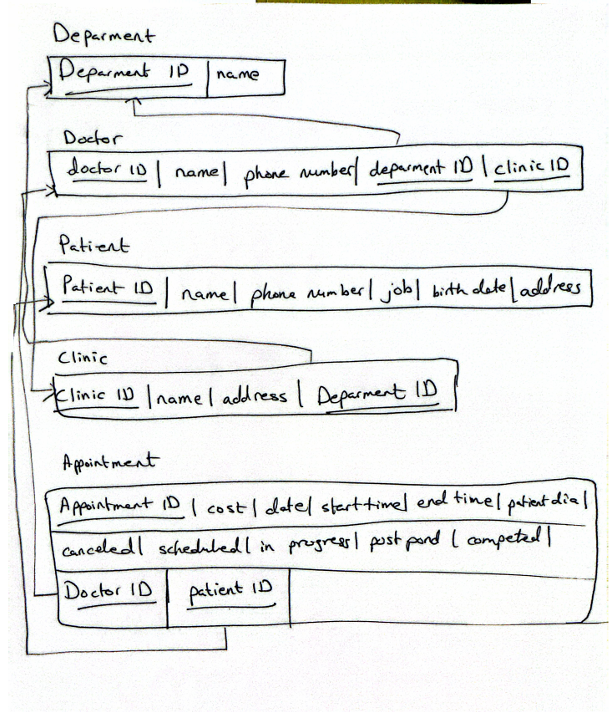 Deparment
Deparment ID | name
Doctor
doctor ID | name | phone number | deparment ID | clinic ID
Patient
Patient ID | name | phone number | job | birth date | address
Clinic
Clinic ID | name | address | Deparment ID
Appointment
Appointment ID | cost | date | start time | end time | patient dia |
canceled | scheduled | in progress | post pond | competed |
Doctor ID | patient ID